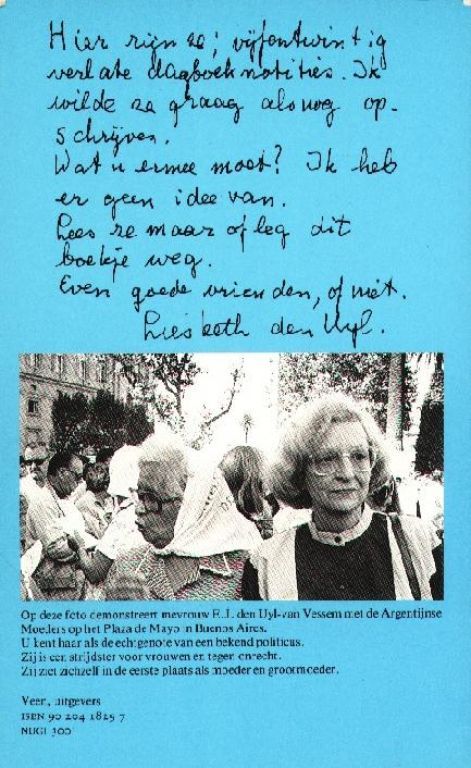 Hier zijn ze; vijfentwintig
verlate dagboeknotities. Ik
wilde ze graag alsnog op-
schrijven.
Wat u ermee moet? Ik heb
er geen idee van.
Lees ze maar of leg dit
boekje weg.
Even goede vrienden, of niet.
Liesbeth den Uyl.
Op deze foto demonstreert mevrouw E.J. den Uyl-van Vessem met de Argentijnse
Moeders op het Plaza de Mayo in Buenos Aires.
U kent haar als de echtgenote van een bekend politicus.
Zij is een strijdster voor vrouwen en tegen onrecht.
Zij ziet zichzelf in de eerste plaats als moeder en grootmoeder.
Veen, uitgevers
ISBN 90 204 1825 7
NUGI 300